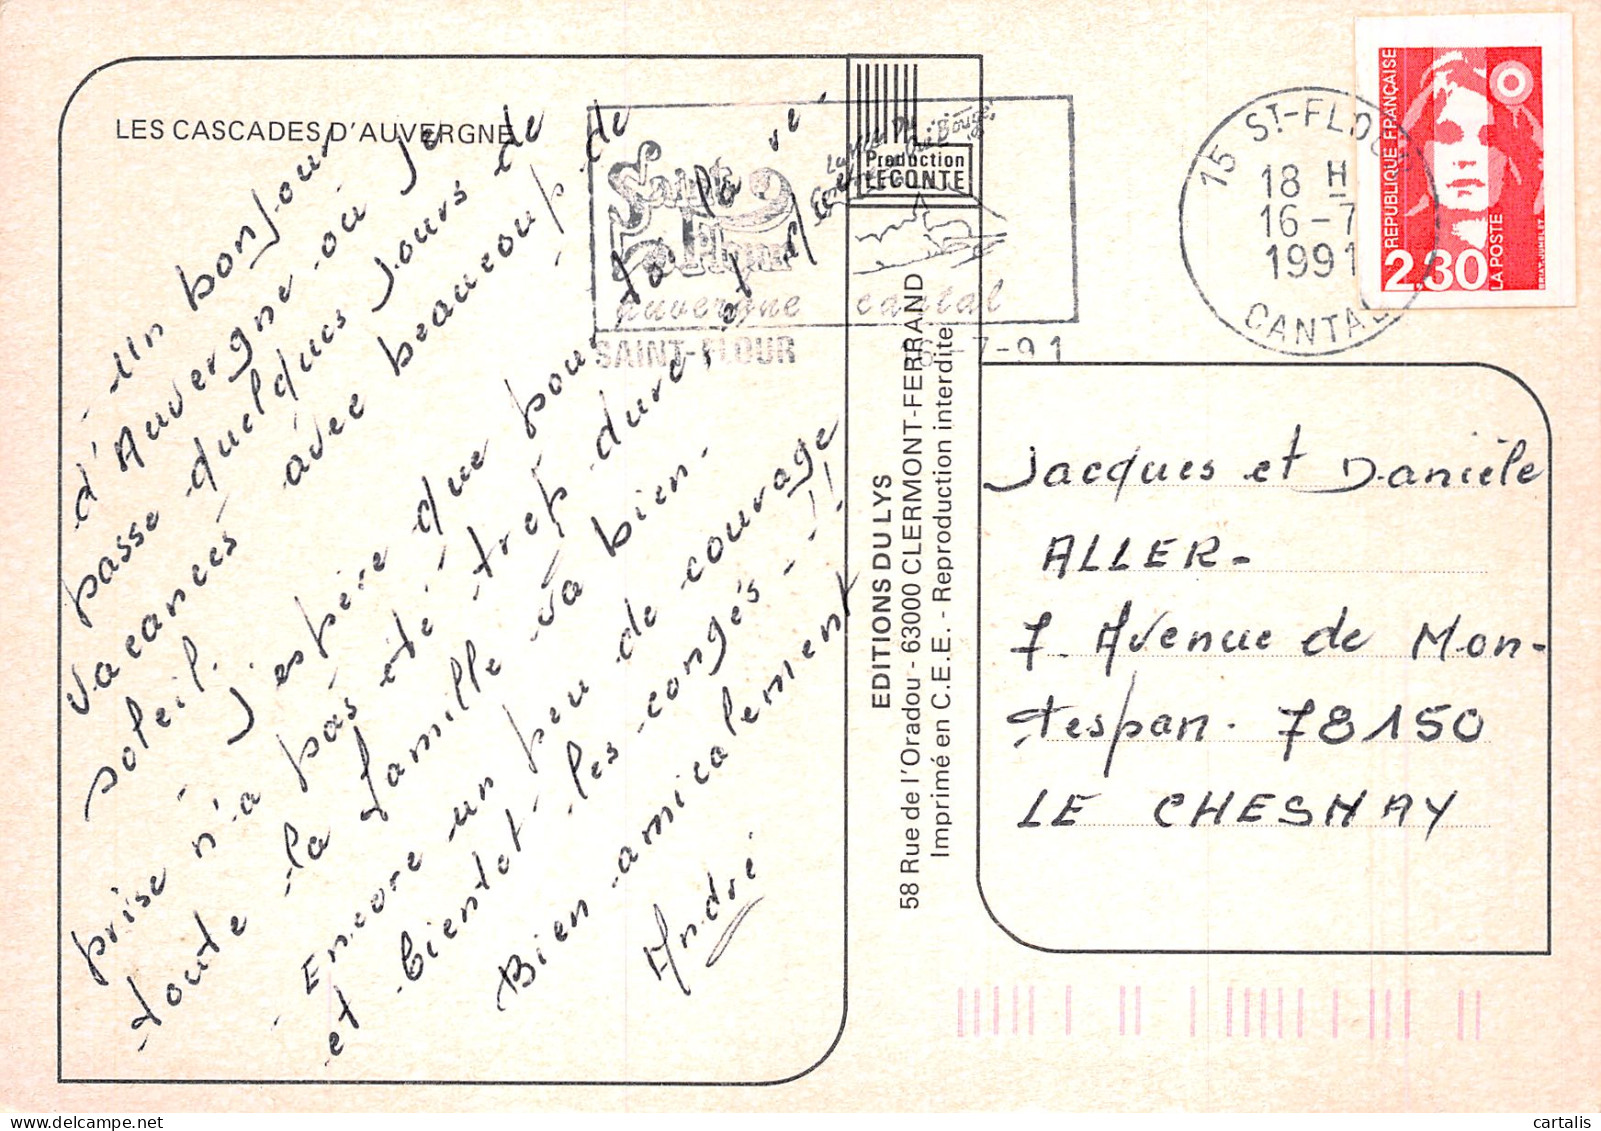 LES CASCADES D'AUVERGNE
Un bonjour
d'Auvergne où je
passe quelques jours de
vacances avec beaucoup de
soleil.
J'espère que pour toi la re-
prise n'a pas été trop dure, et que
toute la famille va bien.
Encore un peu de courage
et bientôt les congés - !!
Bien amicalement
André
Saint
Flour
auvergne cantal
SAINT-FLOUR
16-7-91
Production
LECONTE
EDITIONS DU LYS
58 Rue de l'Oradou - 63000 CLERMONT-FERRAND
Imprimé en C.E.E. - Reproduction interdite
15 ST-FLOUR
18 H
16-7
1991
CANTAL
REPUBLIQUE FRANÇAISE
2,30
LA POSTE
BRIAT-JUMELET
Jacques et Danièle
ALLER-
7. Avenue de Mon-
tespan. 78150
LE CHESNAY
cartalis